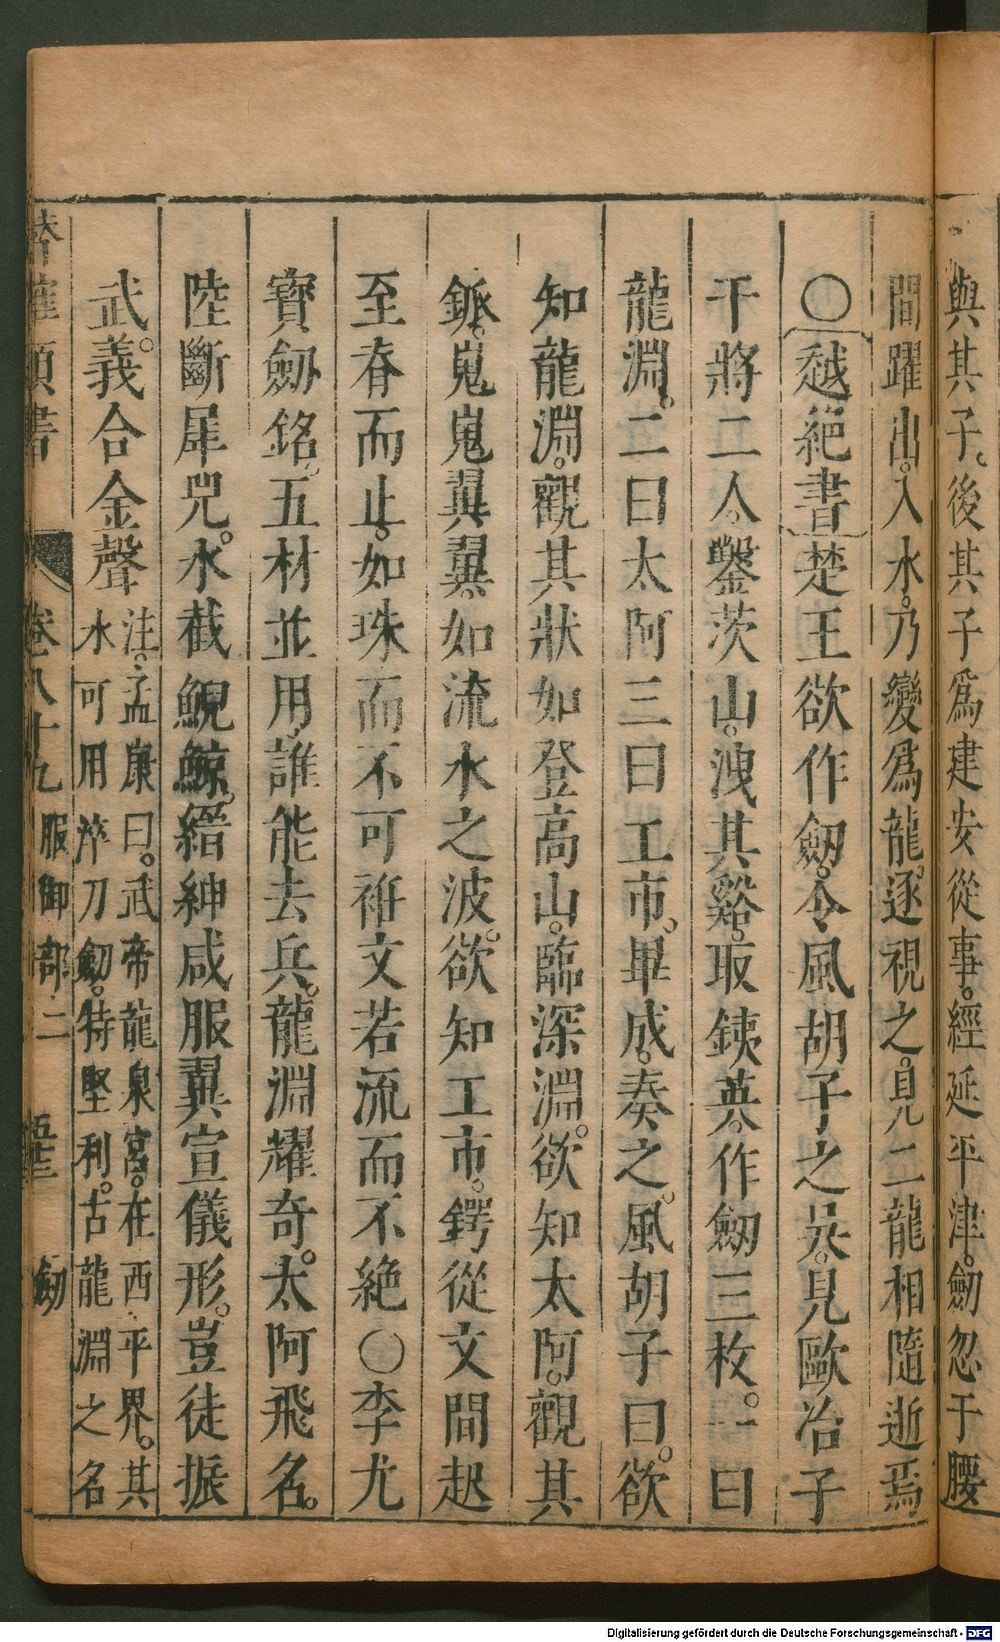 與其子。後其子爲建安從事。經延平津。劒忽于腰
間躍出。入水。乃變爲龍。逐視之。見二龍相隨逝焉
〇越絶書楚王欲作劒。令風胡子之吳。見歐冶子
干將二人。鑿茨山。洩其谿。取鐵英。作劒三枚。一曰
龍淵。二曰太阿三曰工市。畢成。奏之。風胡子曰。欲
知龍淵。觀其狀如登高山。臨深淵。欲知太阿。觀其
鈲。嵬嵬翼翼。如流水之波。欲知工市。鍔從文間起
至脊而止。如珠而不可袵文若流而不絶〇李尤
寶劒銘。五材並用。誰能去兵。龍淵耀奇。太阿飛名。
陸斷犀兕。水截鯢鯨。縉紳咸服翼宣儀形。豈徒振
武。義合金聲
注。孟康曰。武帝龍泉宮。在西平界。其
水可用淬刀劒。特堅利。古龍淵之名
卷八十九 服御部二 劒
Digitalisierung gefördert durch die Deutsche Forschungsgemeinschaft - DFG